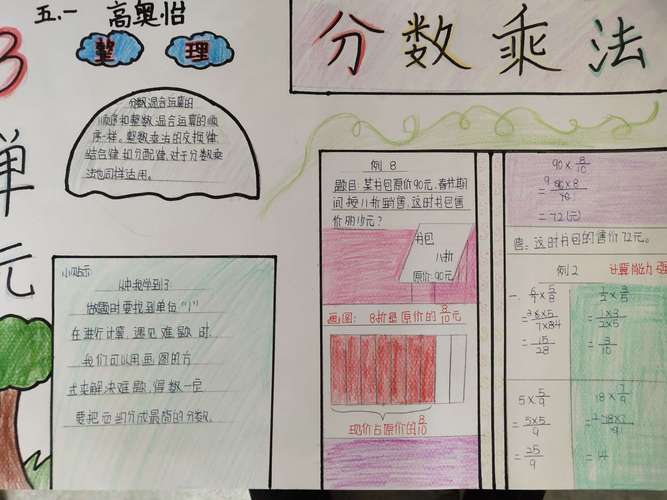 五.一 高奥怡
整 理
分数乘法
3
单
元
分数混合运算的
顺序和整数混合运算的顺
序一样。整数乘法的交换律
结合律和分配律,对于分数乘
法也同样适用。
小贴示
从中我学到了
做题时要找到单位“1”
在进行计算,遇见难题时
我们可以用画图的方
式来解决难题,得数一定
要把它约分成最简的分数。
例 8
题目:某书包原价90元,春节期
间按八折销售,这时书包售
价多少元?
书包
八折
原价:90元
画图: 8折是原价的8/10元
现价占原价的8/10
90×8/10
=90×8/10
=72(元)
答:这时书包的售价72元。
例2 计算能力强
一.
6/7×5/8
=6×5/7×84
=15/28
1/2×3/5
=1×3/2×5
=3/10
5×5/9
=5×5/9
=25/9
18×7/9
=14